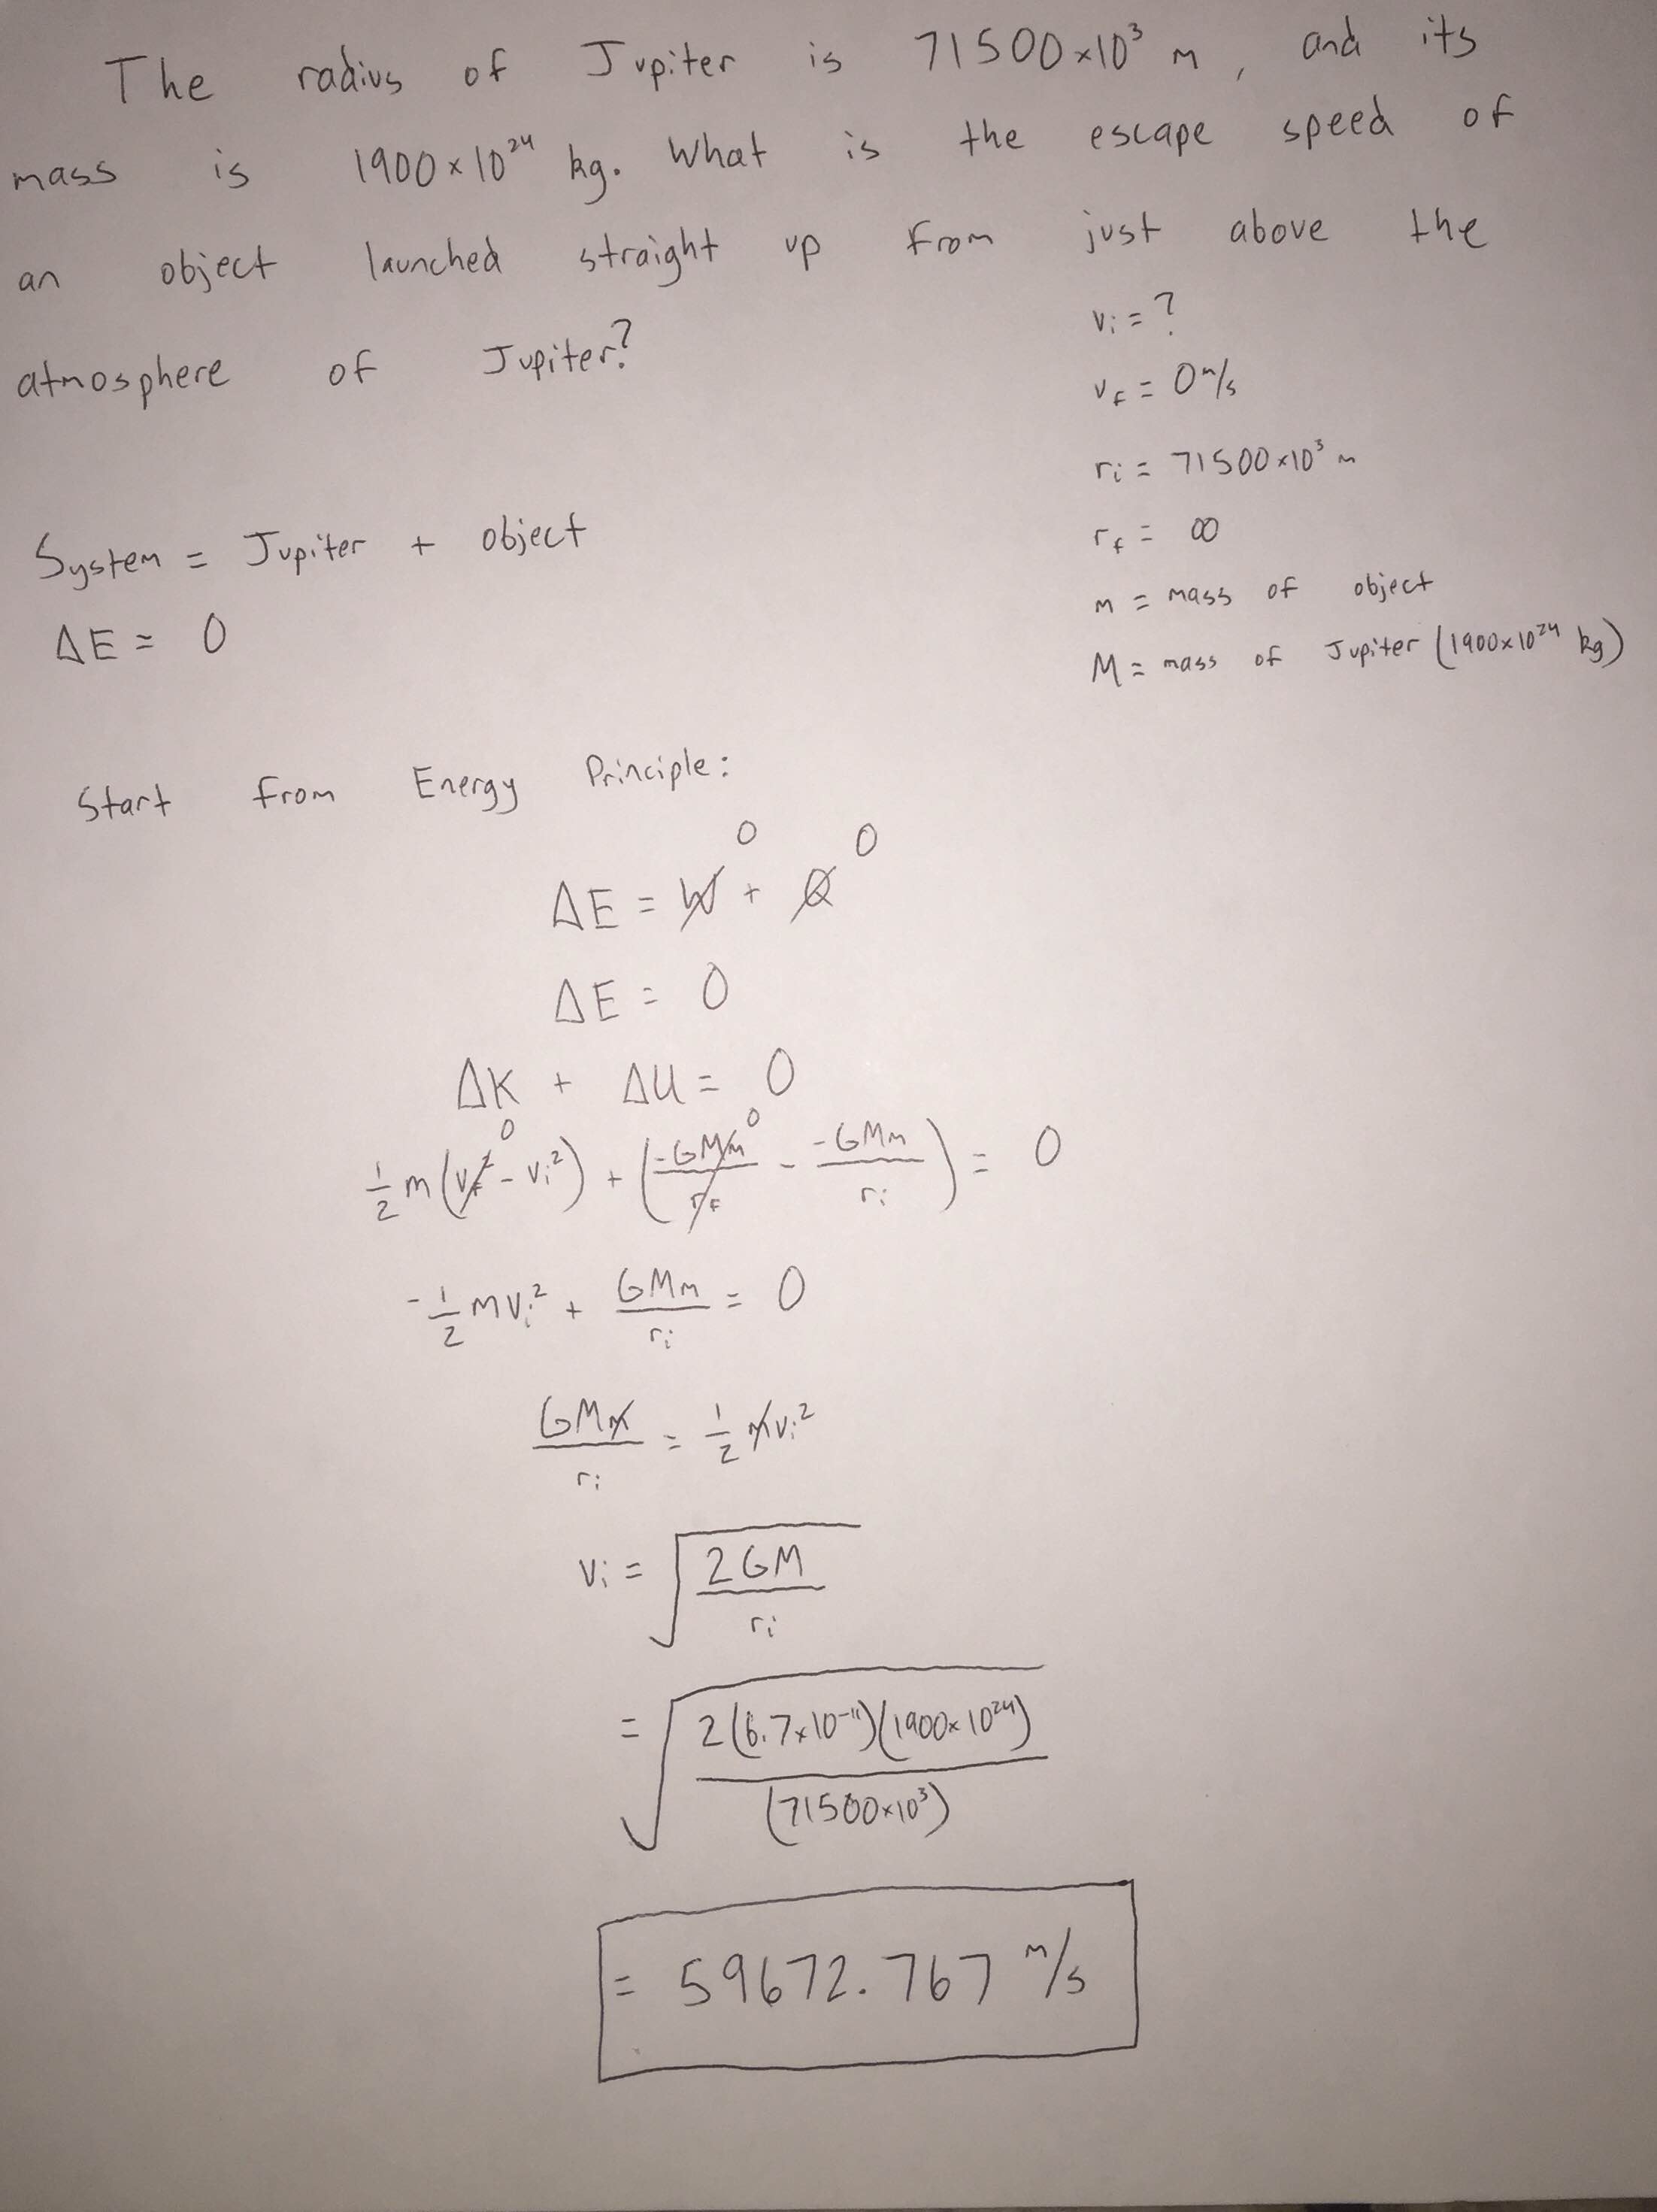 The radius of Jupiter is 71500×10³ m, and its
mass is 1900×10²⁴ kg. What is the escape speed of
an object launched straight up from just above the
atmosphere of Jupiter?
vᵢ = ?
v_f = 0 m/s
rᵢ = 71500×10³ m
r_f = ∞
m = mass of object
M = mass of Jupiter (1900×10²⁴ kg)
System = Jupiter + object
ΔE = 0
Start from Energy Principle:
ΔE = W⁰ + Q⁰
ΔE = 0
ΔK + ΔU = 0
½m(v_f² ⁰ - vᵢ²) + (-GMm/r_f ⁰ - -GMm/rᵢ) = 0
-½mvᵢ² + GMm/rᵢ = 0
GMm/rᵢ = ½mvᵢ²
vᵢ = √(2GM/rᵢ)
= √(2(6.7×10⁻¹¹)(1900×10²⁴)/(71500×10³))
= 59672.767 m/s